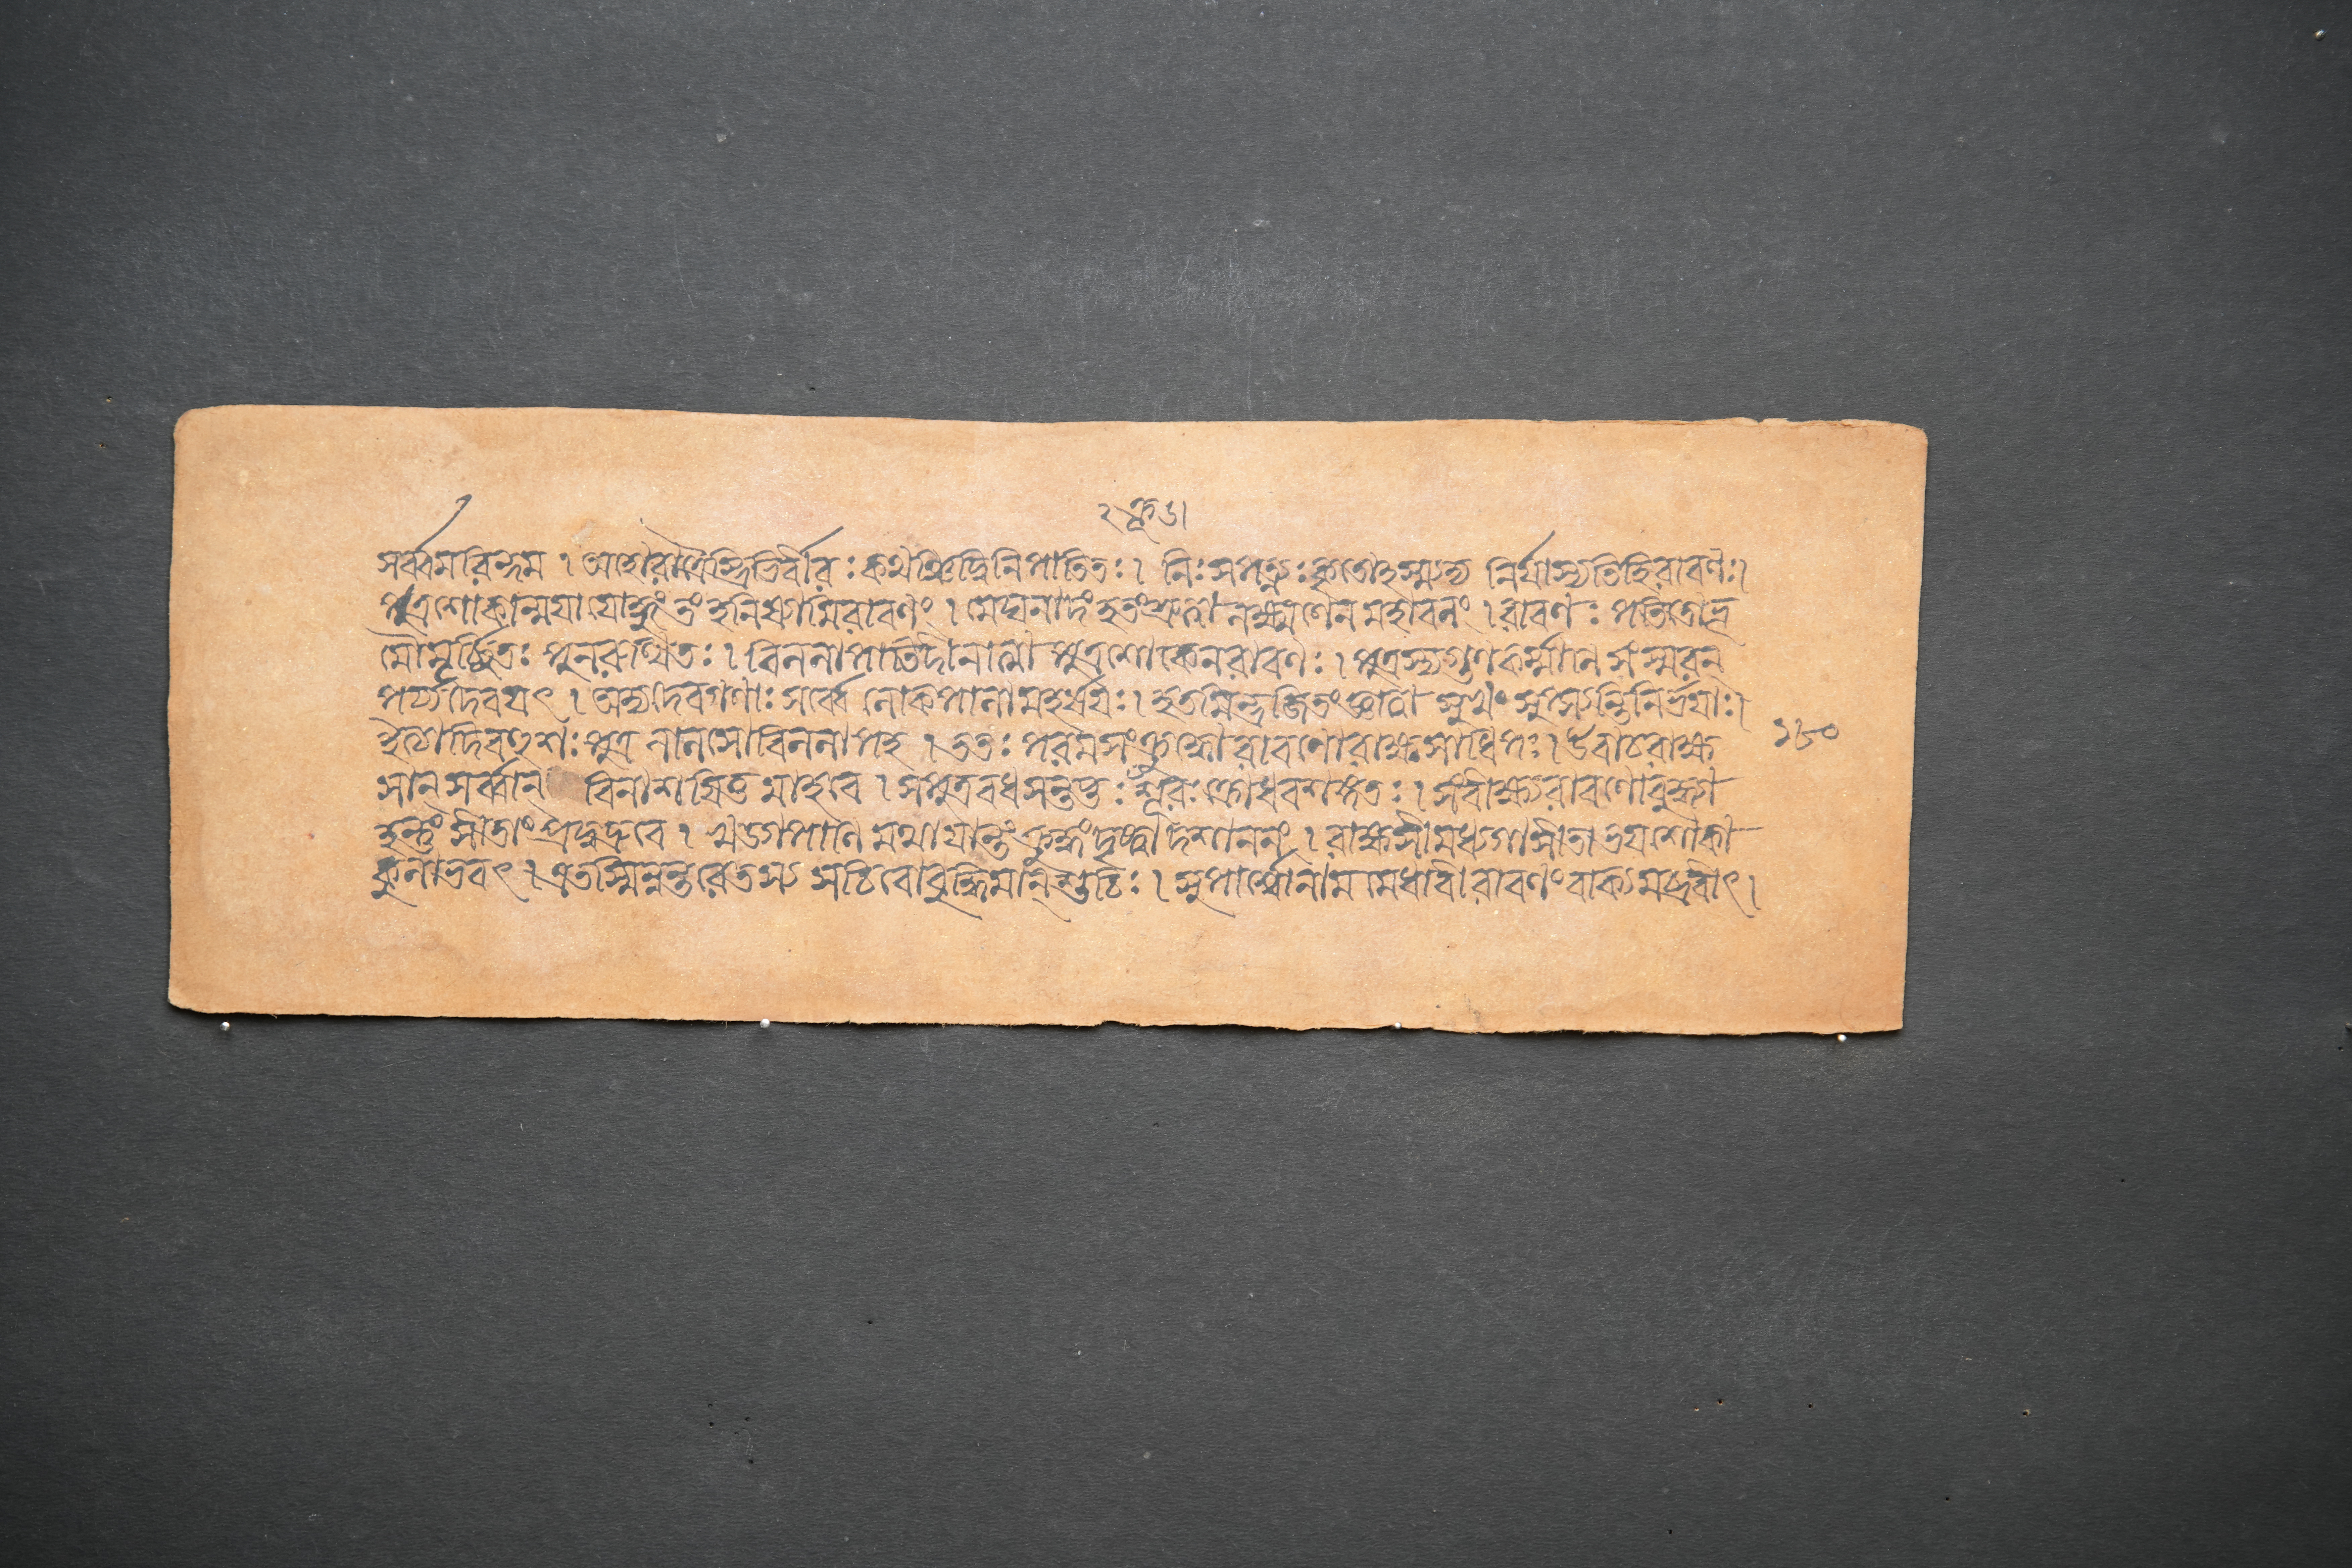 সর্ব্বমরিন্দম । অহোরাত্রৈস্ত্রিভির্বীরঃ কথঞ্চিদ্বিনিপাতিতঃ । নিঃসপত্নঃ কৃতোহস্ম্যদ্য নির্যাস্যতিহিরাবণঃ।
পুত্রশোকান্ময়া যোদ্ধুং তং হনিষ্যামিরাবণং । মেঘনাদং হতংশ্রুত্বা লক্ষ্মণেনমহাবলং । রাবণঃ পতিতোভূ
মৌমূর্চ্ছিতঃ পুনরুত্থিতঃ । বিললাপাতিদীনাত্মা পুত্রশোকেনরাবণঃ । পুত্রস্যগুণকর্ম্মাণি সংস্মরন্
পর্য্যদেবয়ৎ । অদ্যদেবগণাঃ সর্ব্বে লোকপালামহর্ষয়ঃ । হতমিন্দ্রজিতং জ্ঞাত্বা সুখং স্বপ্স্যন্তিনির্ভয়াঃ।
ইত্যাদিবহুশঃ পুত্র লালসোবিললাপহ । ততঃ পরমসংক্রুদ্ধোরাবণোরাক্ষসাধিপঃ । উবাচরাক্ষ
সান্ সর্ব্বান্ বিনাশয়িতুমাহবে । সপুত্রবধসন্তপ্তঃ শূরঃ ক্রোধবশঙ্গতঃ । সংবীক্ষ্যরাবণোবুদ্ধ্যা
হন্তুং সীতাং প্রদুদ্রুবে । খড্গপাণিমথায়ান্তং ক্রুদ্ধংদৃষ্ট্বাদশাননং । রাক্ষসীমধ্যগাসীতাভয়শোকা
কুলাভবৎ । এতস্মিন্নন্তরেতস্য সচিবোবুদ্ধিমান্ শুচিঃ । সুপার্শ্বোনামমেধাবীরাবণং বাক্যমব্রবীৎ ।